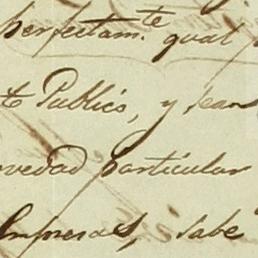 perfectam.te qual
to Publico, y sean
vedad particular
Empresas, sabe